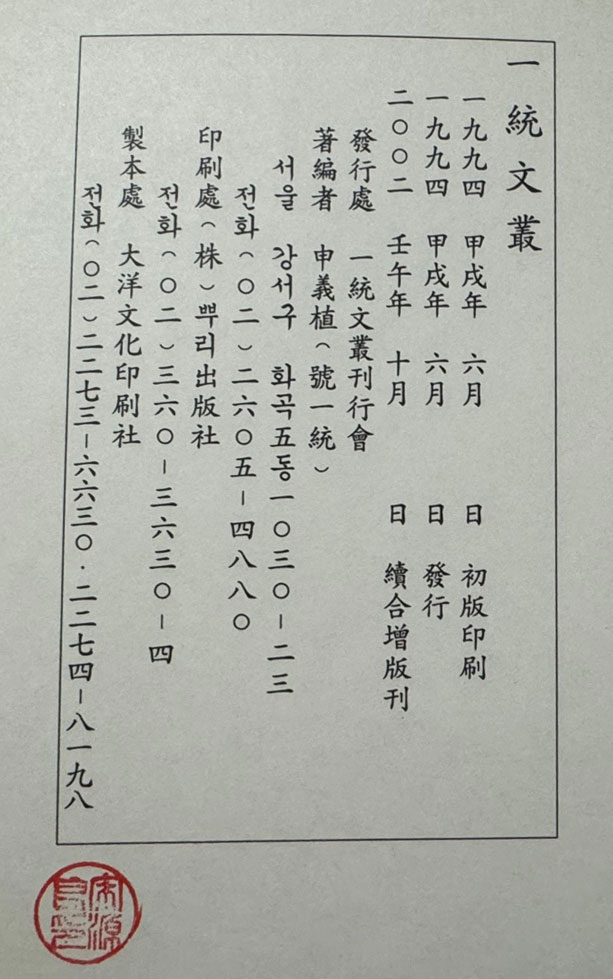 一統文叢
一九九四 甲戌年 六月 日 初版印刷
一九九四 甲戌年 六月 日 發行
二○○二 壬午年 十月 日 續合增版刊
發行處 一統文叢刊行會
著編者 申義植(號一統)
서울 강서구 화곡五동一○三○-二三
전화(○二)二六○五-四八八○
印刷處(株)뿌리出版社
전화(○二)三六○-三六三○-四
製本處 大洋文化印刷社
전화(○二)二二七三-六六三○·二二七四-八一九八